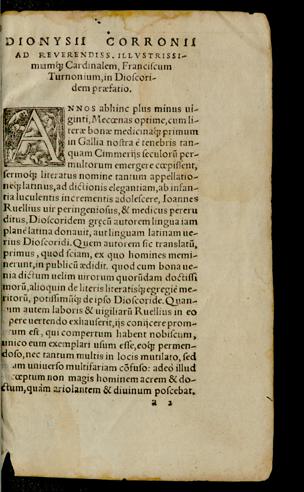 DIONYSII CORRONII
AD REVERENDISS. ILLVSTRISSI-
mumq́; Cardinalem, Franciscum
Turnonium, in Dioscori-
dem præfatio.
ANNOS abhinc plus minus ui-
ginti, Mecœnas optime, cum li-
teræ bonæ medicinaq́; primum
in Gallia nostra è tenebris tan-
quam Cimmerijs seculorũ per-
multorum emergere cœpissent,
sermoq́; literatus nomine tantum appellatio-
neq́; latinus, ad dictionis elegantiam, ab infan-
tia luculentis incrementis adolescere, Ioannes
Ruellius uir peringeniosus, & medicus pereru
ditus, Dioscoridem gręcũ autorem lingua iam
planè latina donauit, aut linguam latinam ue-
rius Dioscoridi. Quem autorem sic translatũ,
primus, quod sciam, ex quo homines memi-
nerunt, in publicũ ædidit. quod cum bona ue-
nia dictum uelim uirorum quorũdam doctissi
morũ, alioquin de literis literatisq́; egregiè me-
ritorũ, potissimũq́; de ipso Dioscoride. Quan-
tum autem laboris & uigiliarũ Ruellius in eo
opere uertendo exhauserit, ijs conijcere prom-
tum est, qui compertum habent nobiscum,
unico eum exemplari usum esse, eoq́; permen-
doso, nec tantum multis in locis mutilato, sed
etiam uniuerso multifariam cõfuso: adeò illud
cœptum non magis hominem acrem & do-
ctum, quàm ariolantem & diuinum poscebat.
a 2